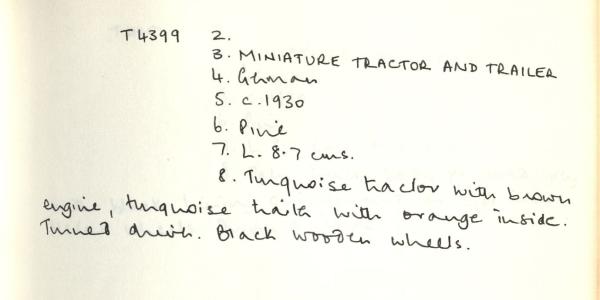 T4399 2.
3. MINIATURE TRACTOR AND TRAILER
4. German
5. c.1930
6. Pine
7. L. 8.7 cms.
8. Turquoise tractor with brown
engine, turquoise trailer with orange inside.
Turned driver. Black wooden wheels.